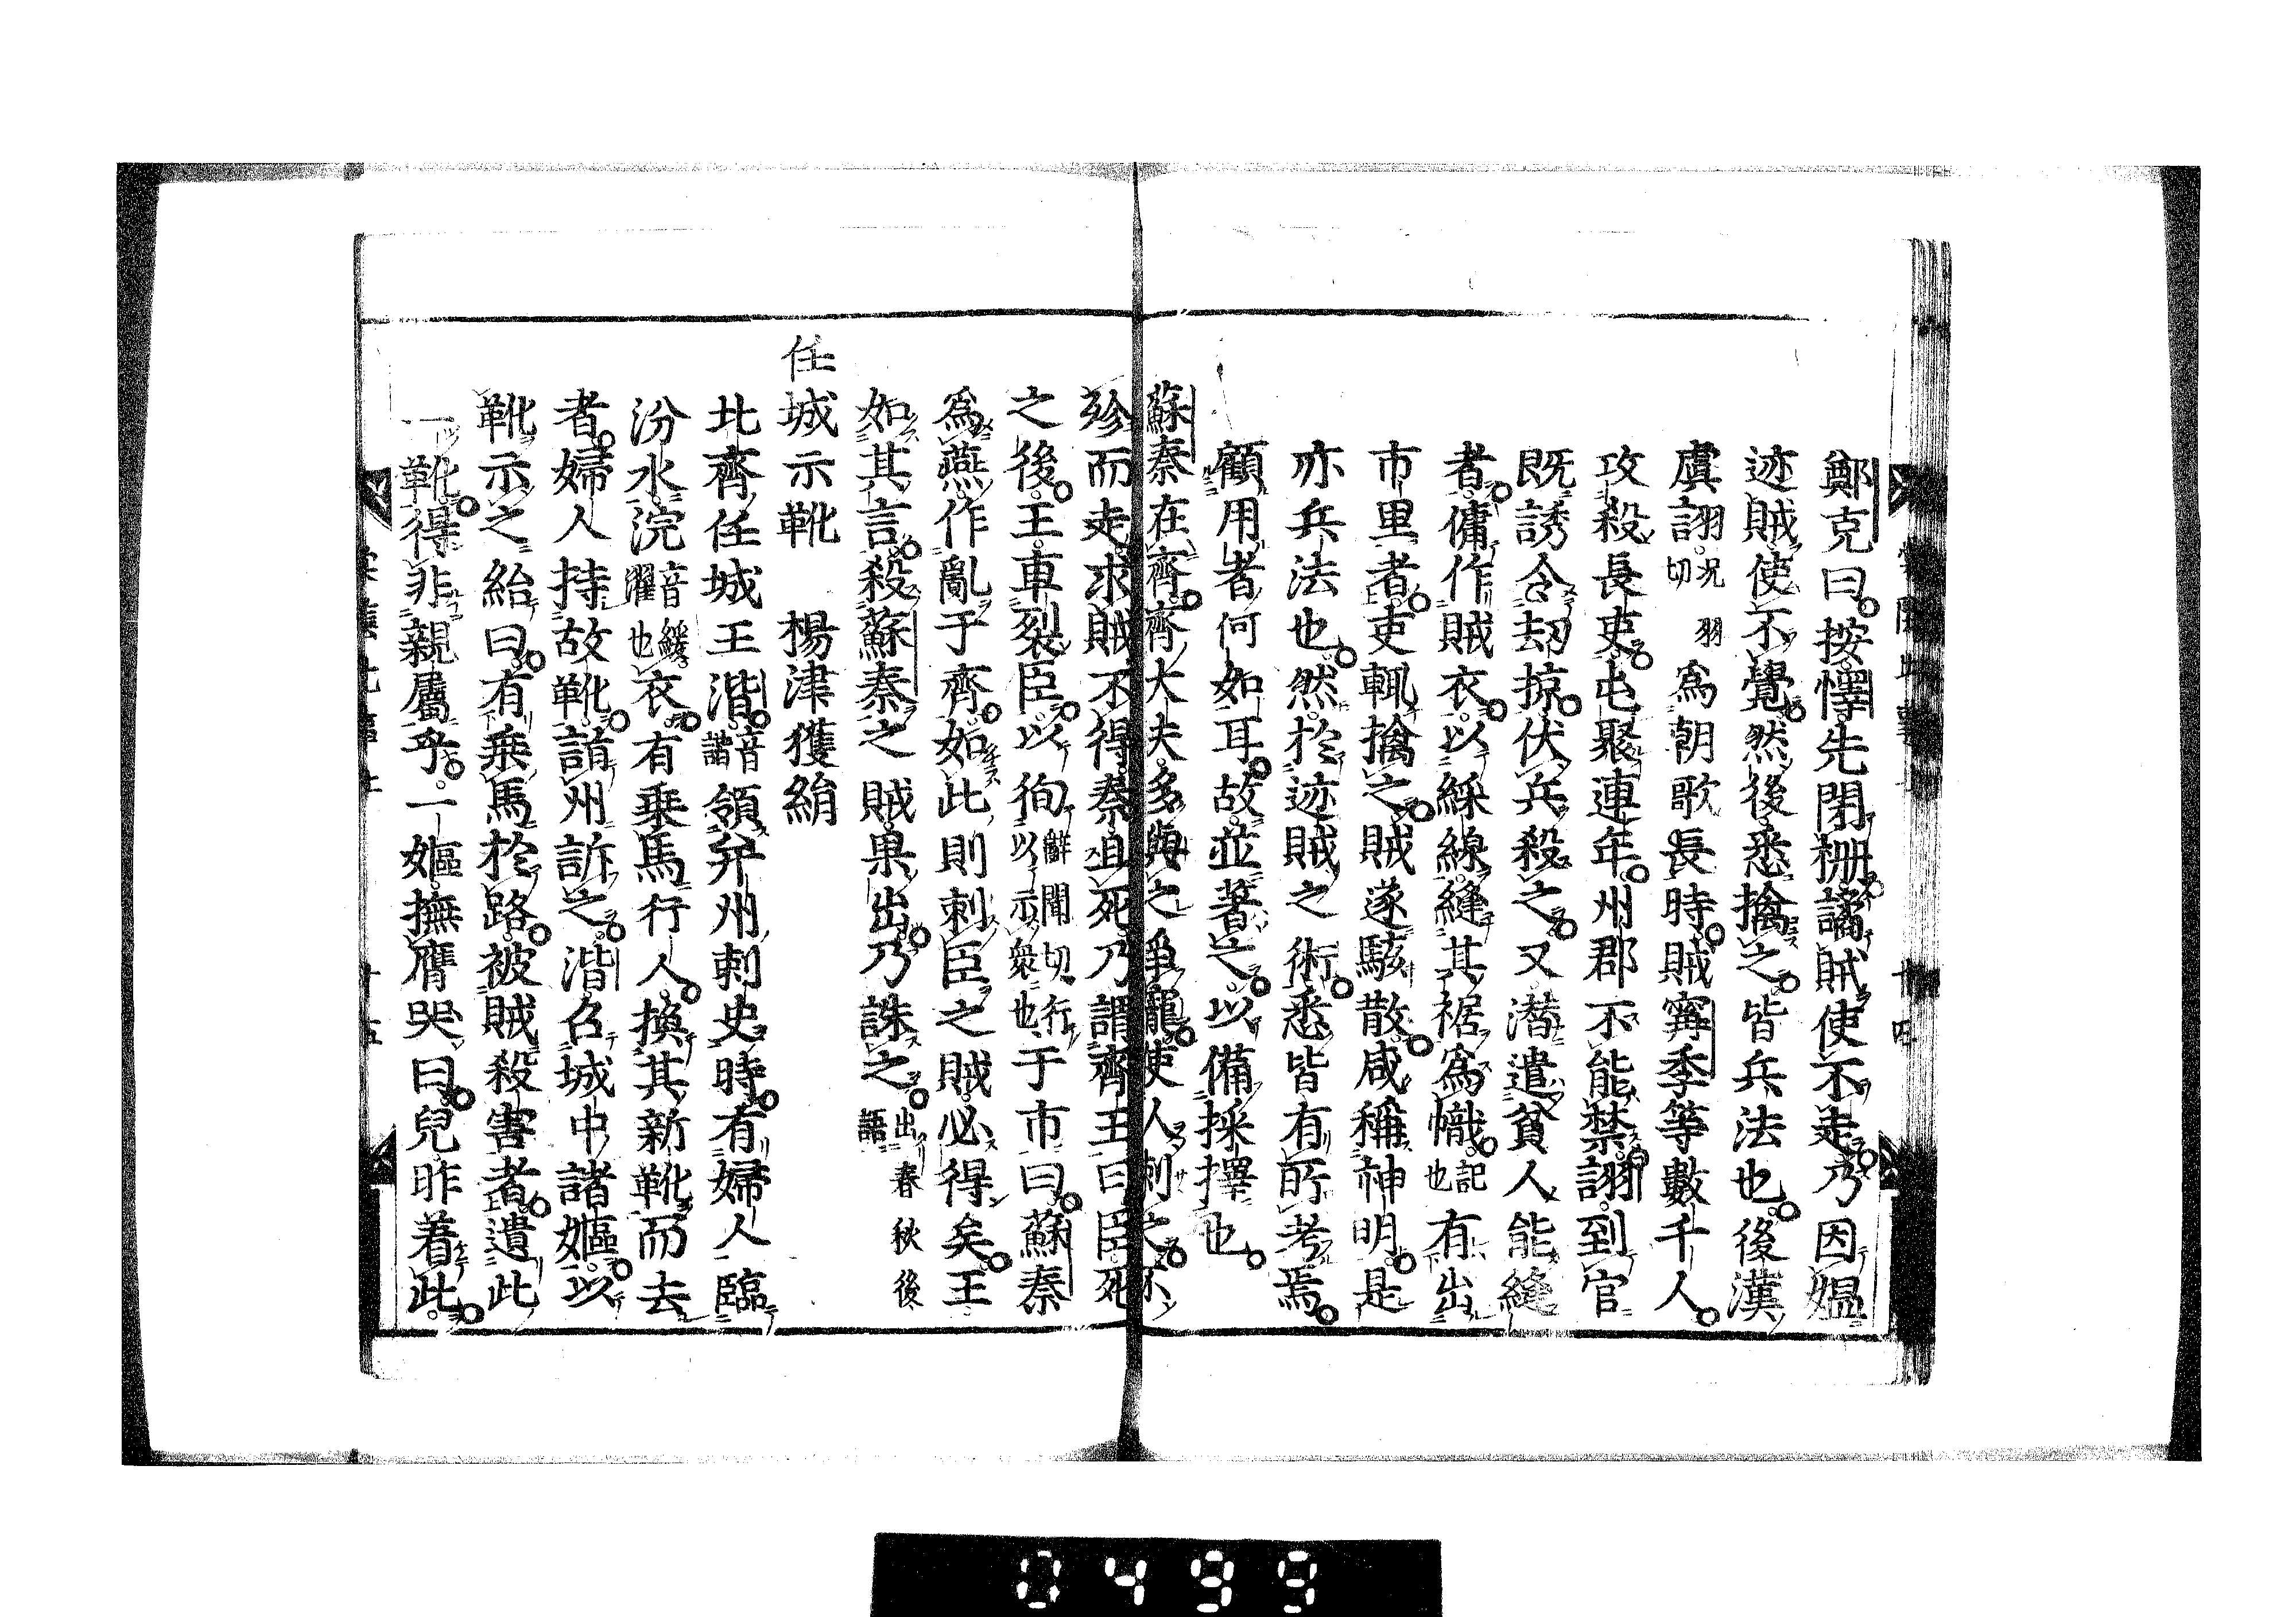 鄭克曰按懌先閉柵譎賊使不走乃因媼
迹賊使不覺然後悉擒之皆兵法也後漢
虞詡況羽切為朝歌長時賊甯季等數千人
攻殺長吏屯聚連年州郡不能禁詡到官
既誘令劫掠伏兵殺之又潜遣貧人能縫
者傭作賊衣以綵線縫其裾為幟記也有出
市里者吏輒擒之賊遂駭散咸稱神明是
亦兵法也然於迹賊之術悉皆有所考焉
顧用者何如耳故並著之以備採擇也
蘇秦在齊齊大夫多與之爭寵使人刺之不
殄而走求賊不得秦且死乃謂齊王曰臣死
之後王車裂臣以徇辭閏切行以示衆也于市曰蘇秦
為燕作亂于齊如此則刺臣之賊必得矣王
如其言殺蘇秦之賊果出乃誅之出春秋後語
任城示靴　楊津獲絹
北齊任城王湝音諧領并州刺史時有婦人臨
汾水浣音緩濯也衣有乗馬行人換其新靴而去
者婦人持故靴詣州訴之湝召城中諸嫗以
靴示之紿曰有乗馬於路被賊殺害者遺此
一靴得非親屬乎一嫗撫膺哭曰兒昨着此
十四
十五
0499